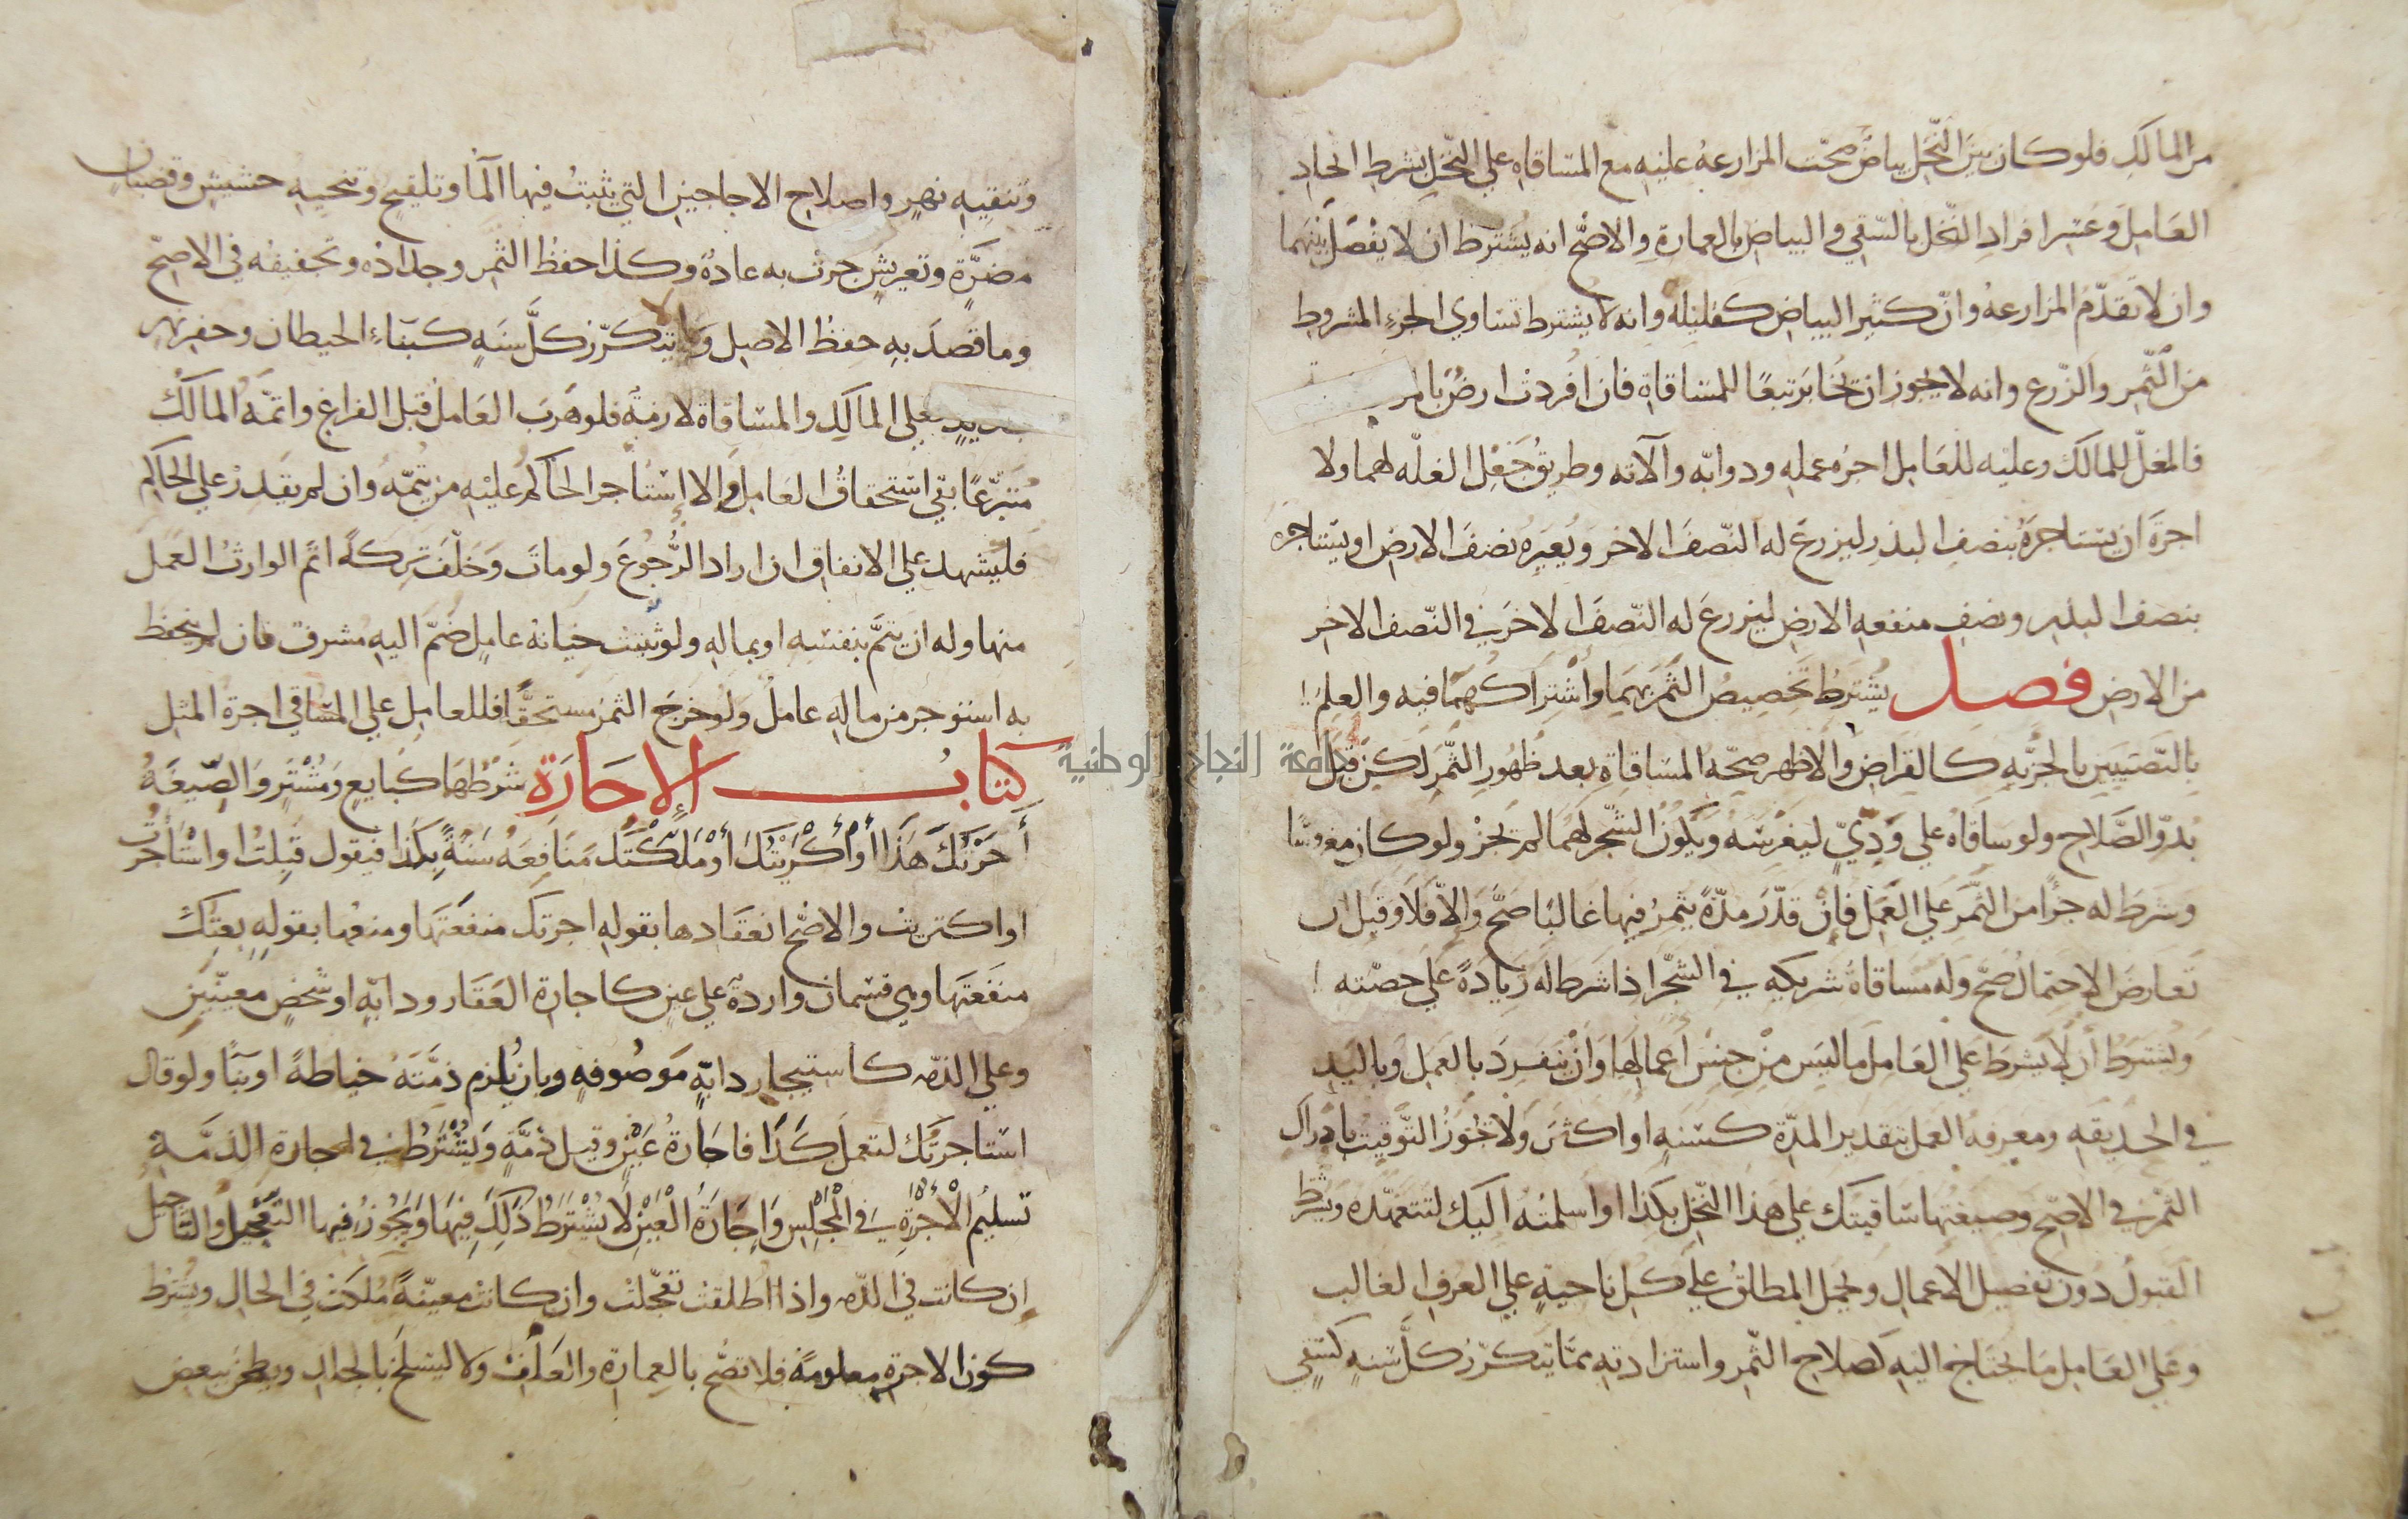 من المالك فلو كان بين النخل بياض صحت المزارعة عليه مع المساقاة علي النخل بشرط اتحاد
العامل وعسر افراد النخل بالسقي والبياض بالعمارة والاصح انه يشترط ان لا يفصل بينهما
وان لا تقدم المزارعة وان كثير البياض كقليله وانه لا يشترط تساوي الجزء المشروط
من الثمر والزرع وانه لا يجوز ان يخابر تبعا للمساقاة فان افردت ارض بالمز
فالمغل للمالك وعليه للعامل اجرة عمله ودوابه وآلاته وطريق جعل الغلة لهما ولا
اجرة ان يستاجره بنصف البذر ليزرع له النصف الاخر ويعيره نصف الارض او يستاجره
بنصف البذر ونصف منفعة الارض ليزرع له النصف الاخر في النصف الاخر
من الارض فصل يشترط تخصيص الثمر بهما واشتراكهما فيه والعلم
بالنصيبين بالجزية كالقراض والاظهر صحة المساقاة بعد ظهور الثمر لكن قبل
بدو الصلاح ولو ساقاه علي ودي ليغرسه ويكون الشجر لهما لم يجز ولو كان مغروسا
وشرط له جزا من الثمر علي العمل فان قدر مدة يثمر فيها غالبا صح والا فلا وقيل ان
تعارض الاحتمال صح وله مساقاة شريكه في الشجر اذا شرط له زيادة علي حصته
ويشترط ان لا يشرط علي العامل ما ليس من جنس اعمالها وان ينفرد بالعمل وباليد
في الحديقة ومعرفة العمل بتقدير المدة كسنة او اكثر ولا يجوز التوقيت بادراك
الثمر في الاصح وصيغتها ساقيتك علي هذا النخل بكذا او اسلمته اليك لتتعهده ويشترط
القبول دون تفصيل الاعمال ويحمل المطلق علي كل ناحية علي العرف الغالب
وعلي العامل ما يحتاج اليه لصلاح الثمر واستزادته مما يتكرر كل سنة كسقي
وتنقية نهر واصلاح الاجاجين التي يثبت فيها الما وتلقيح وتنحية حشيش وقضبان
مضرة وتعريش جرت به عادة وكذا حفظ الثمر وجداذه وتجفيفه في الاصح
وما قصد به حفظ الاصل ولا يتكرر كل سنة كبناء الحيطان وحفر نهر
جديد فعلي المالك والمساقاة لازمة فلو هرب العامل قبل الفراغ واتمه المالك
متبرعا بقي استحقاق العامل والا استاجر الحاكم عليه من يتمه وان لم يقدر علي الحاكم
فليشهد علي الانفاق ان اراد الرجوع ولو مات وخلف تركة اتم الوارث العمل
منها وله ان يتم بنفسه او بماله ولو ثبتت خيانة عامل ضم اليه مشرف فان لم يتحفظ
به استوجر من ماله عامل ولو خرج الثمر مستحقا فللعامل علي المساقي اجرة المثل
كتاب الاجارة شرطهما كبايع ومشتر والصيغة
أجرتك هذا أو أكريتك أو ملكتك منافعه سنة بكذا فيقول قبلت او استاجرت
او اكتريت والاصح انعقادها بقوله اجرتك منفعتها ومنعها بقوله بعتك
منفعتها وهي قسمان واردة علي عين كاجارة العقار ودابة او شخص معينين
وعلي الذمة كاستيجار دابة موصوفة وبان يلزم ذمته خياطة او بنا ولو قال
استاجرتك لتعمل كذا فاجارة عين وقيل ذمة ويشترط في اجارة الذمة
تسليم الأجرة في المجلس وإجارة العين لا يشترط ذلك فيها ويجوز فيها التعجيل والتاجيل
إن كانت في الذمة واذا اطلقت تعجلت وان كانت معينة ملكت في الحال ويشترط
كون الاجرة معلومة فلا تصح بالعمارة والعلف ولا ليسلخ بالجلد ويطحن ببعض
جامعة النجاح الوطنية